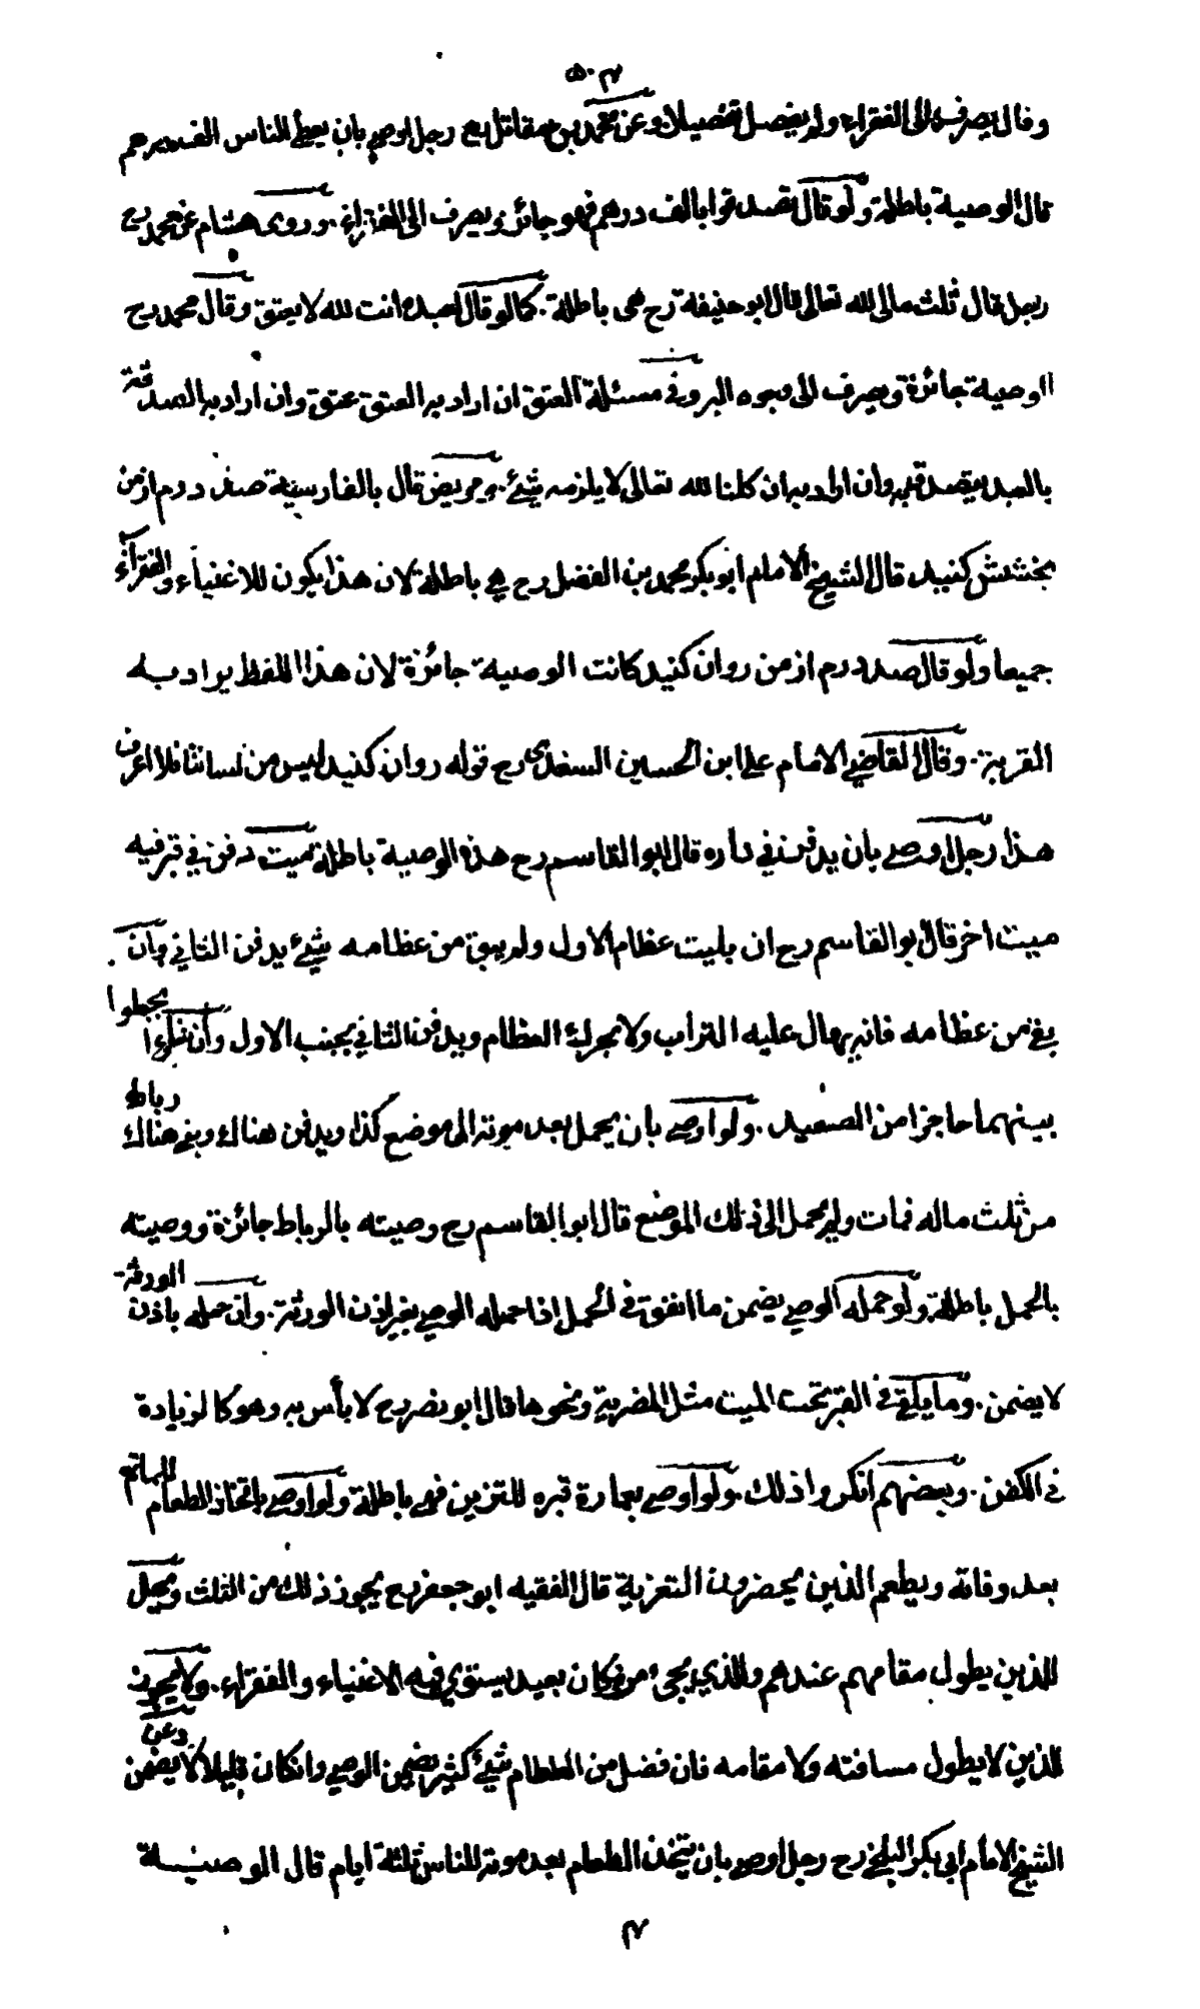 ۵۰۳
وقال يصرف الى الفقراء ولم يفصل تفصيلا وعن محمد بن مقاتل رح رجل اوصى بان يعطى للناس الف درهم
قال الوصية باطلة ولو قال تصدقوا بالف درهم فهو جائز ويصرف الى الفقراء. وروى هشام عن محمد رح
رجل قال ثلث مالى لله تعالى قال ابو حنيفة رح هى باطلة. كما لو قال لعبده انت لله لا يعتق وقال محمد رح
الوصية جائزة ويصرف الى وجوه البر وفى مسئلة العتق ان اراد به العتق عتق وان اراد به الصدقة
بالعبد يتصدق به وان اراد به ان كلنا لله تعالى لا يلزمه شئ. ومريض قال بالفارسية صد درم از من
بخشش كنيد قال الشيخ الامام ابو بكر محمد بن الفضل رح هي باطلة لان هذا يكون للاغنياء والفقراء
جميعا ولو قال صد درم از من روان كنيد كانت الوصية جائزة لان هذا اللفظ يراد به
القربة. وقال القاضي الامام على ابن الحسين السغدى رح قوله روان كنيد ليس من لساننا فلا اعرف
هذا رجل اوصى بان يدفن في داره قال ابو القاسم رح هذه الوصية باطلة ميت دفن في قبر فيه
ميت اخر قال ابو القاسم رح ان بليت عظام الاول ولم يبق من عظامه شئ يدفن الثاني وان
بقي من عظامه فانه يهال عليه التراب ولا يحرك العظام ويدفن الثاني بجنب الاول وان شاؤا يجعلوا
بينهما حاجزا من الصعيد. ولو اوصى بان يحمل بعد موته الى موضع كذا ويدفن هناك ويبنى هناك رباط
من ثلث ماله فمات ولم يحمل الى ذلك الموضع قال ابو القاسم رح وصيته بالرباط جائزة ووصيته
بالحمل باطلة ولو حمله الوصي يضمن ما انفق فى الحمل اذا حمله الوصي بغير اذن الورثة. وان حمله باذن الورثة
لا يضمن. وما يلقى فى القبر تحت الميت مثل المضربة ونحوها قال ابو نصر رح لا بأس به وهو كالزيادة
فى الكفن. وبعضهم انكروا ذلك. ولو اوصى بعمارة قبره للتزيين فهى باطلة ولو اوصى باتخاذ الطعام للماتم
بعد وفاته ويطعم الذين يحضرون التعزية قال الفقيه ابو جعفر رح يجوز ذلك من الثلث ويحل
للذين يطول مقامهم عندهم وللذي يجئ من مكان بعيد يستوي فيه الاغنياء والفقراء. ولا يجوز
للذين لا يطول مسافته ولا مقامه فان فضل من الطعام شئ كثير يضمن الوصي وان كان قليلا لا يضمن وعن
الشيخ الامام ابى بكر البلخي رح رجل اوصى بان يتخذ الطعام بعد موته للناس ثلثة ايام قال الوصية